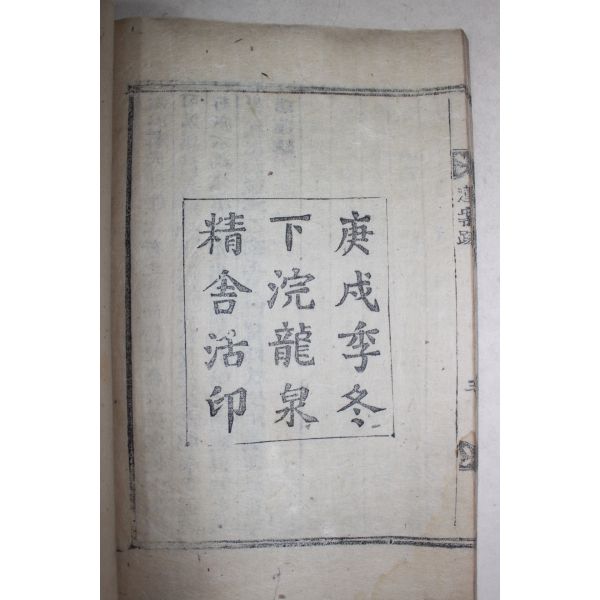 庚戌季冬
下浣龍泉
精舍活印